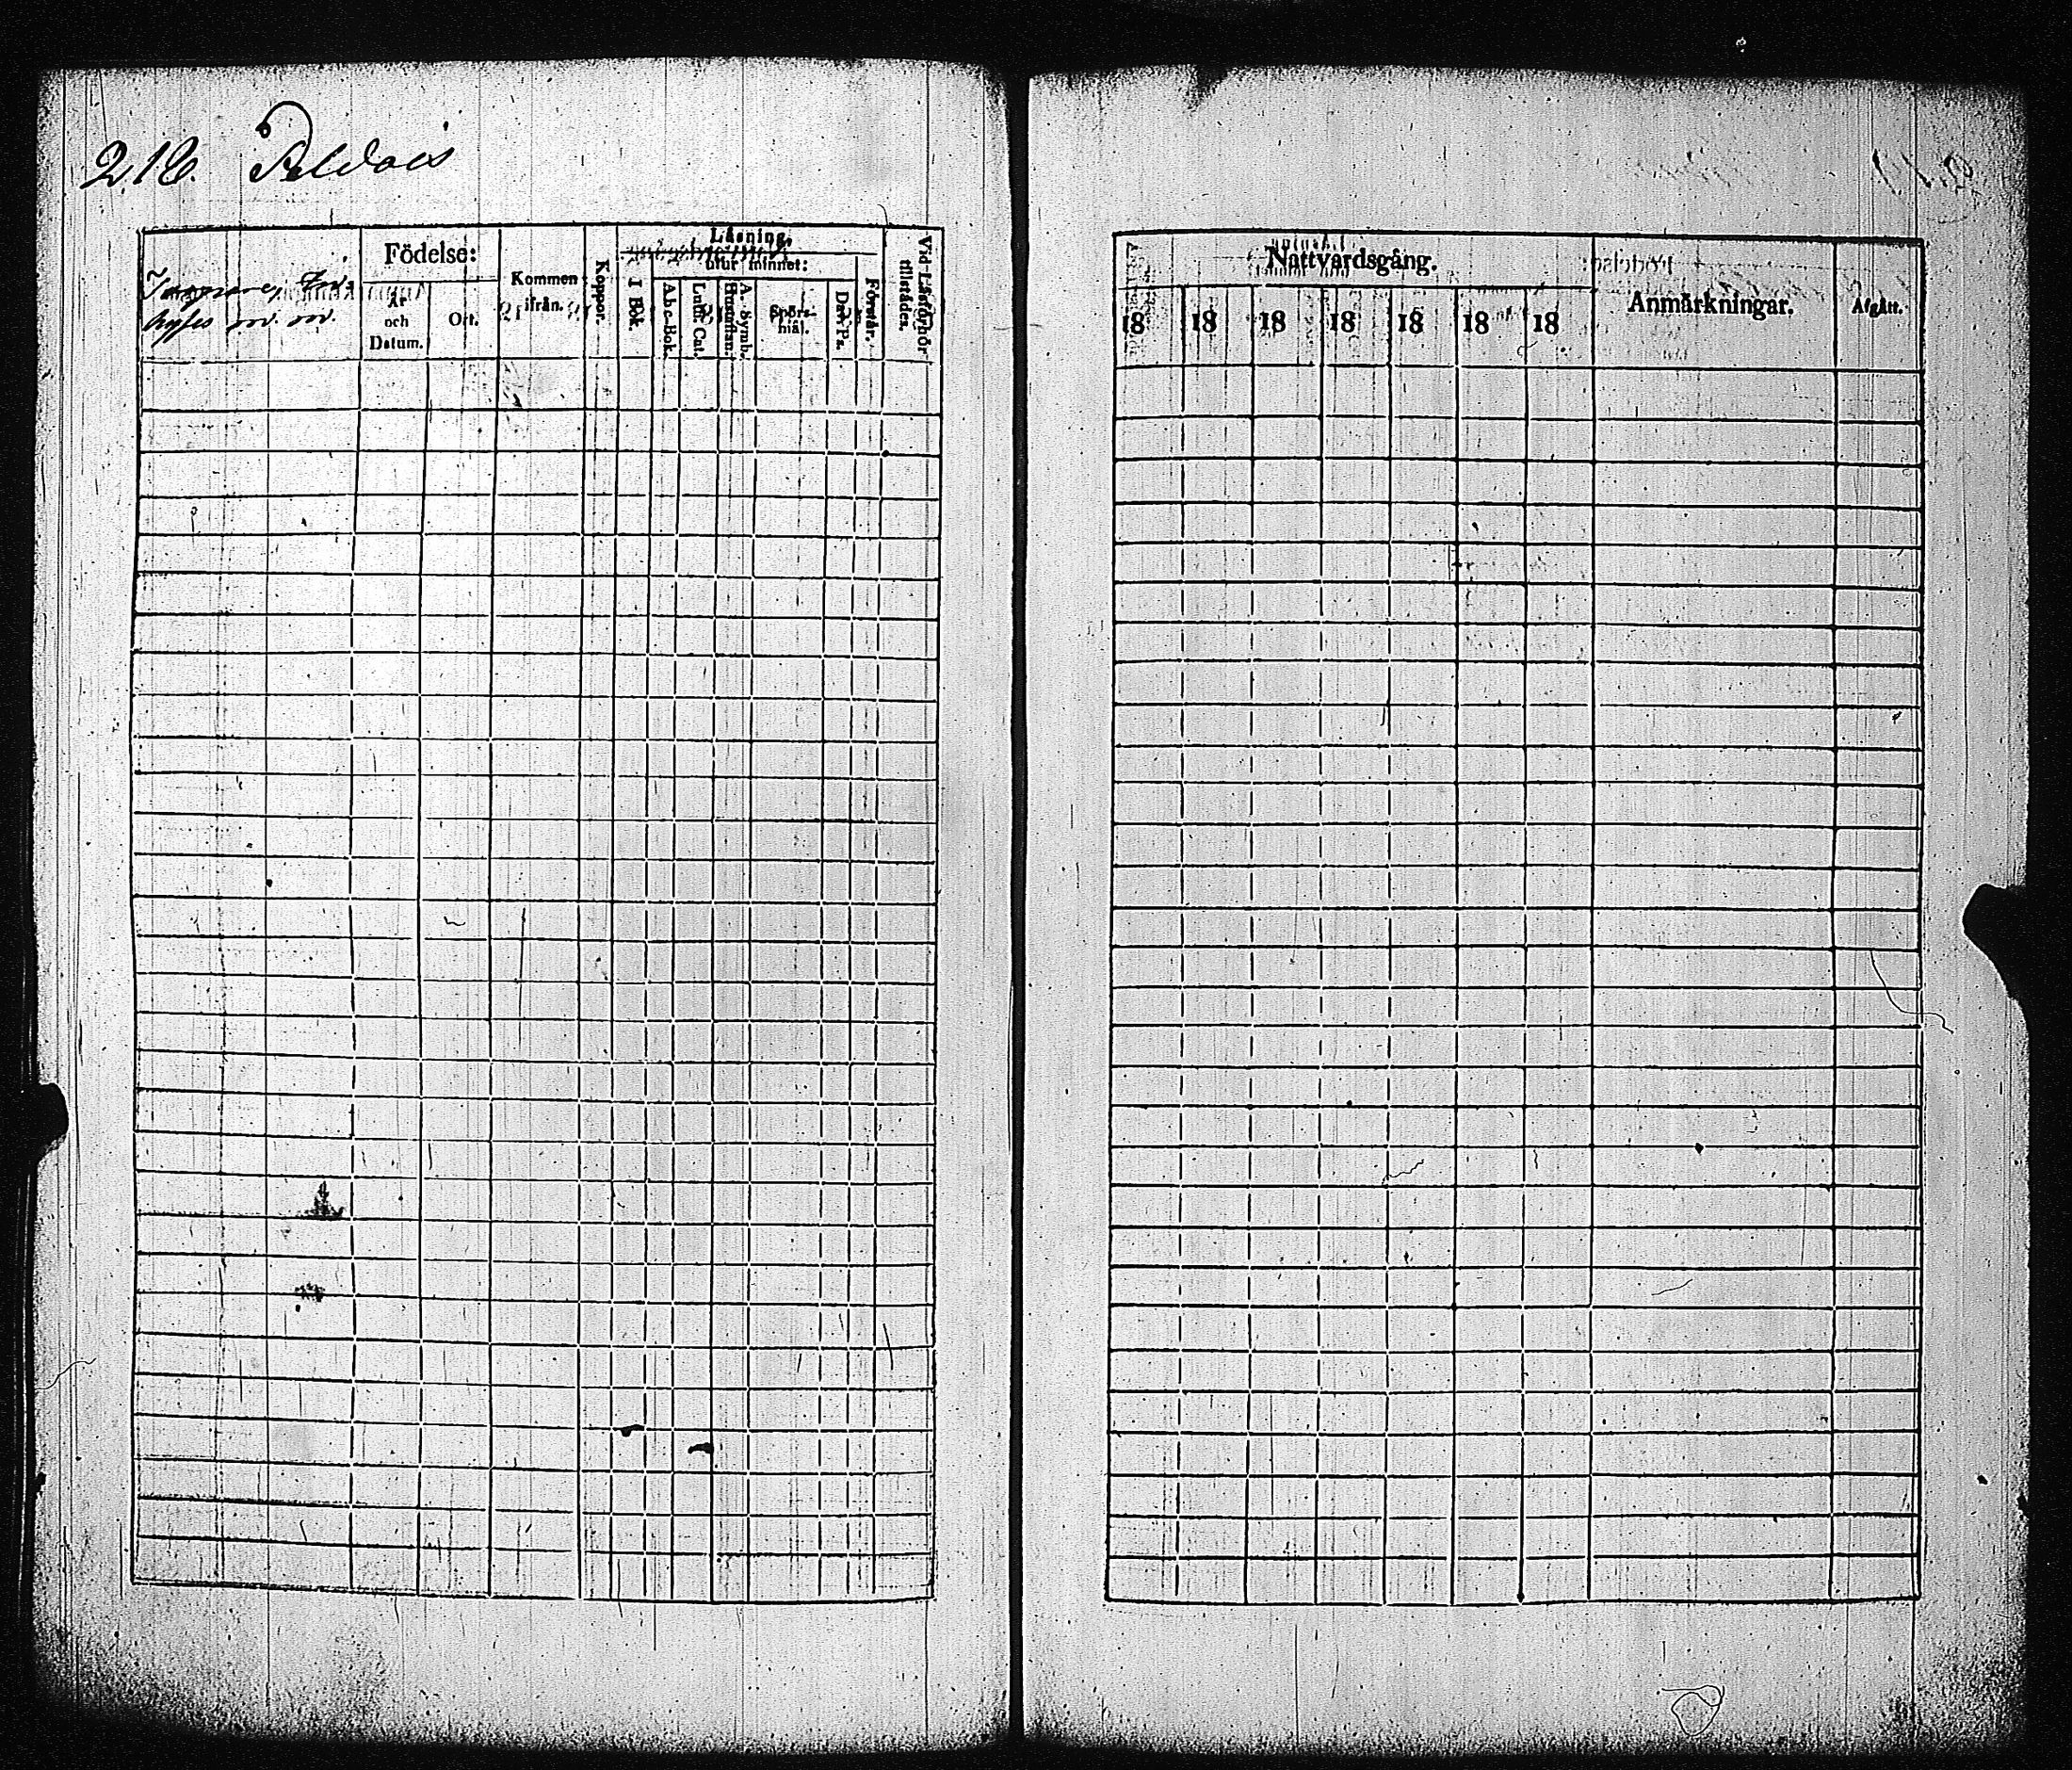 218. Paldais
Torpare, In-
hyses m. m.
Födelse:
År och Datum.
Ort.
Kommen ifrån.
Koppor.
Läsning,
I Bok.
utur minnet:
A.b.c-Bok.
Luth. Cat.
Hustaflan.
A. Symb.
Spörs-mål.
Dav. Ps.
Förstår.
Vid Läsförhör tillstädes.
Nattvardsgång.
18 18 18 18 18 18 18
Anmärkningar.
Afgått.